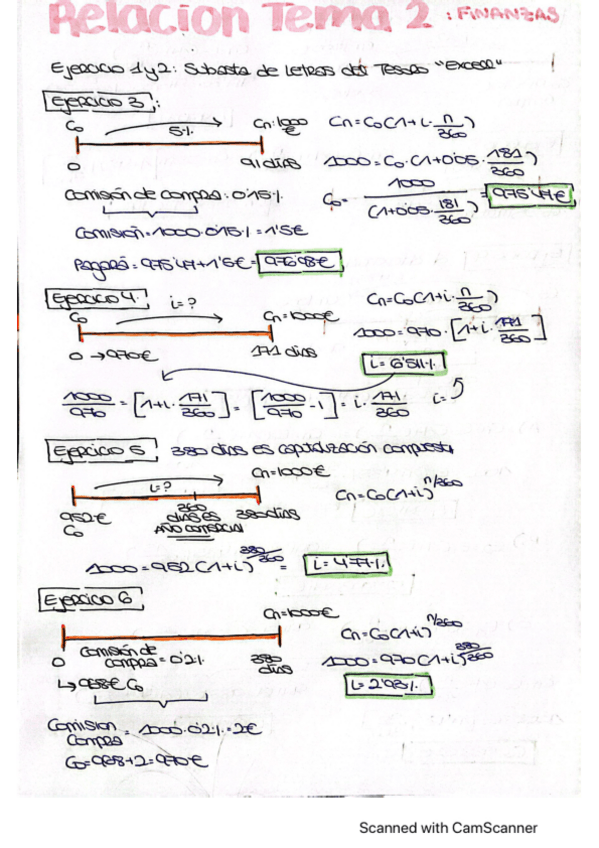 Relacion Tema 2 : FINANZAS
Ejercicio 1 y 2: Subasta de Letras del Tesoro "Excel"
Ejercicio 3:
C0 5% Cn:1000 €
91 días
Cn=C0(1+i·n/360)
1000=C0·(1+0'05·181/360)
C0=1000/(1+0'05·181/360)=975'47€
Comisión de compra: 0'15%
Comisión=1000·0'15%=1'5€
Pagará=975'47+1'5€=976'98€
Ejercicio 4.
C0 i=? Cn=1000€
0→970€ 171 días
Cn=C0(1+i·n/360)
1000=970·[1+i·171/360]
i=6'511%
1000/970=[1+i·171/360]=[1000/970-1]=i·171/360 i=
Ejercicio 5 380 días es capitalización compuesta
Cn=1000€
i=?
952€ C0
360 días es AÑO COMERCIAL
380 días
Cn=C0(1+i)^n/360
1000=952(1+i)^380/360= i=4'77%
Ejercicio 6
Cn=1000€
0 Comisión de compra=0'2% 380 días
↳968€ C0
Cn=C0(1+i)^n/360
1000=970(1+i)^380/360
i=2'93%
Comision Compra = 1000·0'2%=2€
C0=968+2=970€
Scanned with CamScanner